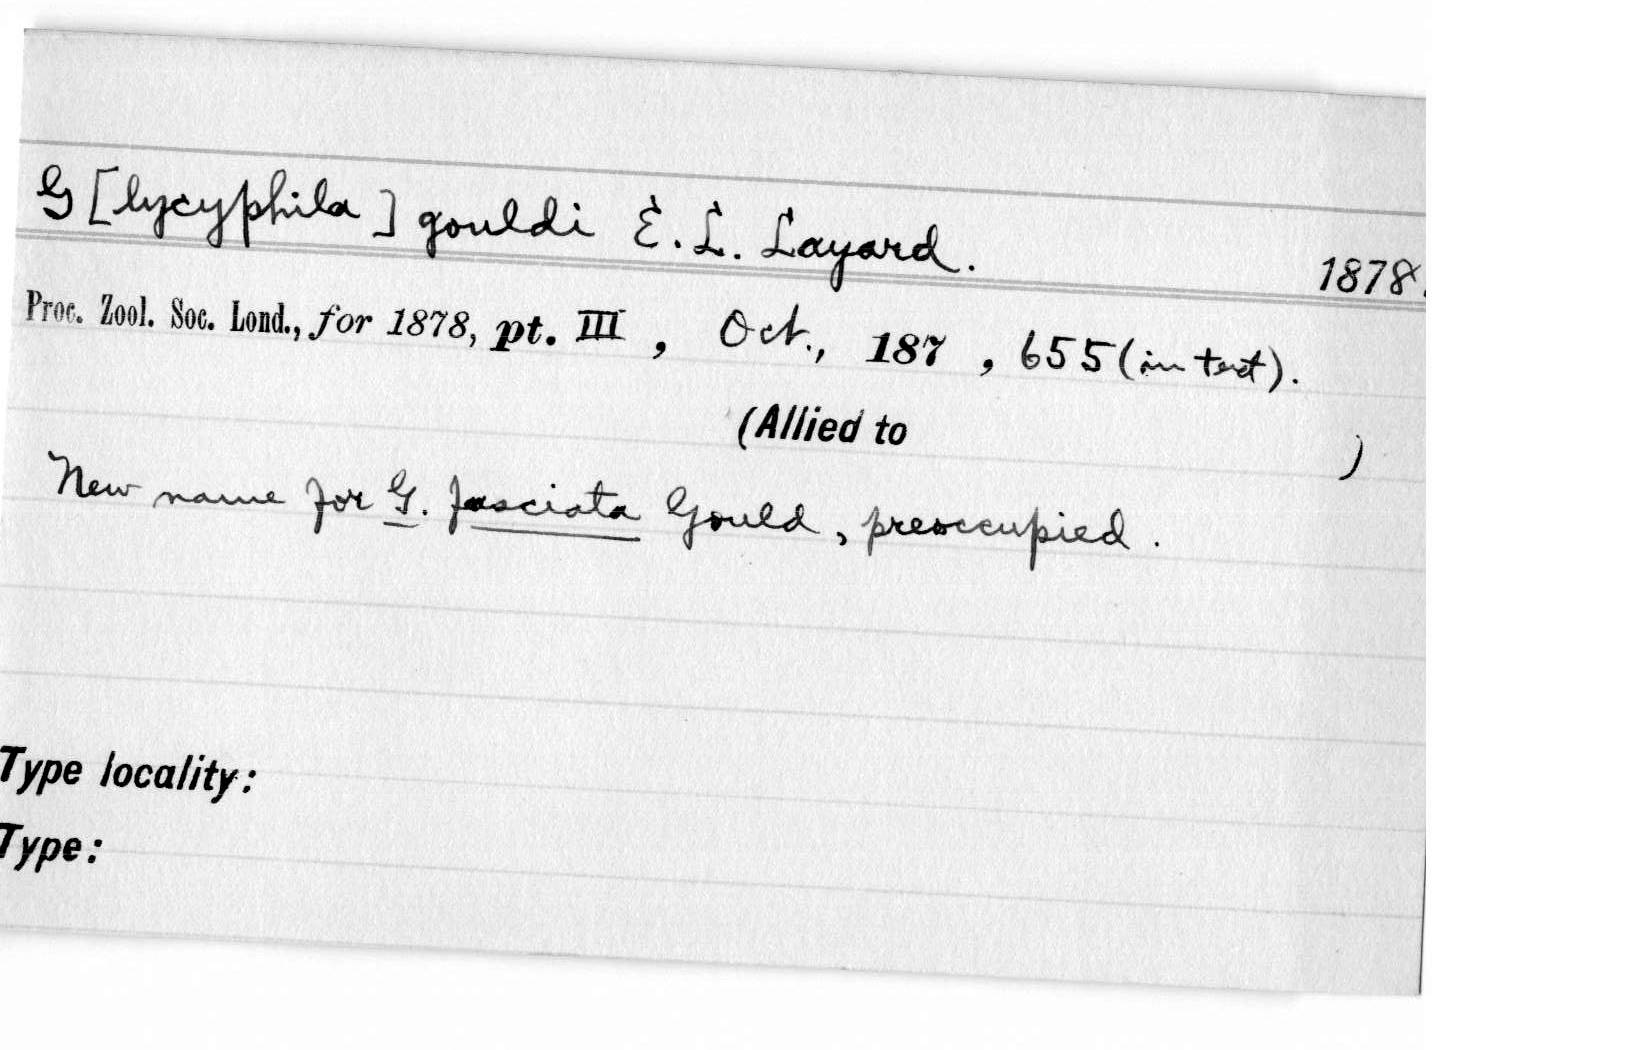 G[lycyphila] gouldi E. L. Layard. 1878.
Proc. Zool. Soc. Lond., for 1878, pt. III, Oct., 187 , 655 (in text).
(Allied to )
New name for G. fasciata Gould, preoccupied.
Type locality:
Type: